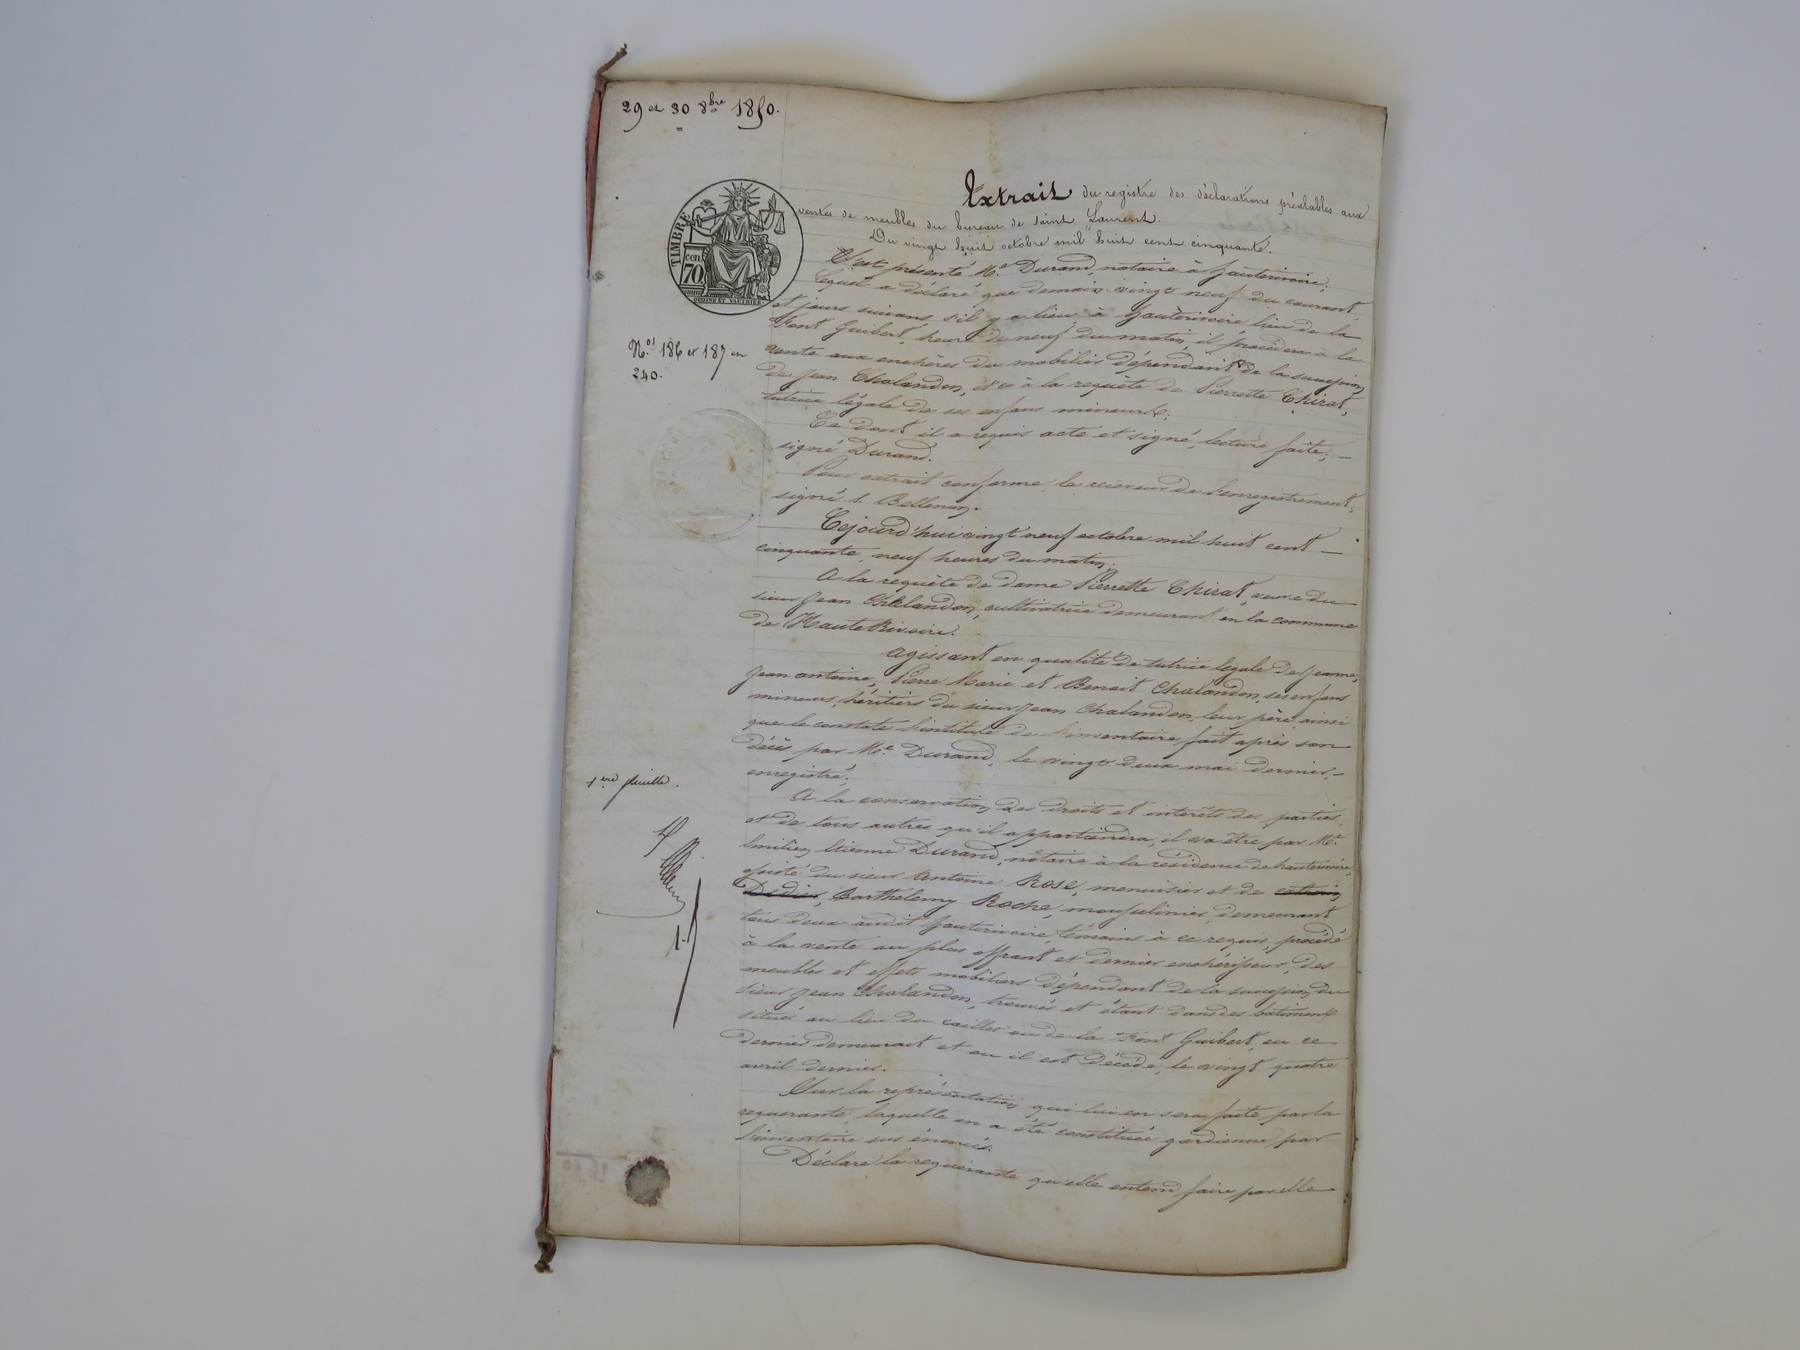 29 et 30 8bre 1850.
Extrait du registre des déclarations préalables aux
ventes de meubles du bureau de Saint Laurent.
Du vingt huit octobre mil huit cent cinquante.
TIMBRE
CEN
70
S'est présenté Me Durand, notaire à hauterivoire;
lequel a déclaré que demain vingt neuf du courant
et jours suivans s'il y a lieu à hauterivoire lieu de la
Font Guibert, heure de neuf du matin, il procédera à la
vente aux enchères du mobilier dépendant de la succession
de Jean Chalandon, et ce à la requête de Pierrette Chirat,
tutrice légale de ses enfans mineurs.
Nos 186 et 187 en
240.
Ce dont il a requis acte et signé, lecture faite; —
signé Durand.
Pour extrait conforme le receveur de l'enregistrement,
signé
Cejourd'hui vingt neuf octobre mil huit cent —
cinquante, neuf heures du matin;
A la requête de dame Pierrette Chirat, veuve du
sieur Jean Chalandon, cultivatrice demeurant en la commune
de Haute Rivoire.
Agissant en qualité de tutrice légale de Jeanne,
Jean antoine, Pierre Marie et Benoit Chalandon, ses enfans
mineurs, héritiers du sieur Jean Chalandon, leur père, ainsi
que le constate l'intitulé de l'inventaire fait après son
décès par Me Durand, le vingt deux mai dernier, —
enregistré;
1ere feuille.
A la conservation des droits et intérêts des parties,
et de tous autres qu'il appartiendra, il va être par Me
Emilien Etienne Durand, notaire à la résidence de hauterivoire,
assisté du sieur Antoine Rose, menuisier et de
Didier, Barthelemy Roche, mousselinier, demeurant
tous deux audit hauterivoire, témoins à ce requis, procédé
à la vente au plus offrant et dernier enchérisseur, des
meubles et effets mobiliers dépendant de la succession du
sieur Jean Chalandon, trouvés et étant dans des bâtimens
situés au lieu du caillet ou de la Font Guibert, ou ce
dernier demeurait et ou il est décédé, le vingt quatre
avril dernier.
Sur la représentation qui lui en sera faite par la
requerante, laquelle en a été constituée gardienne par
l'inventaire sus énoncé.
Déclare la requérante qu'elle entend faire par elle